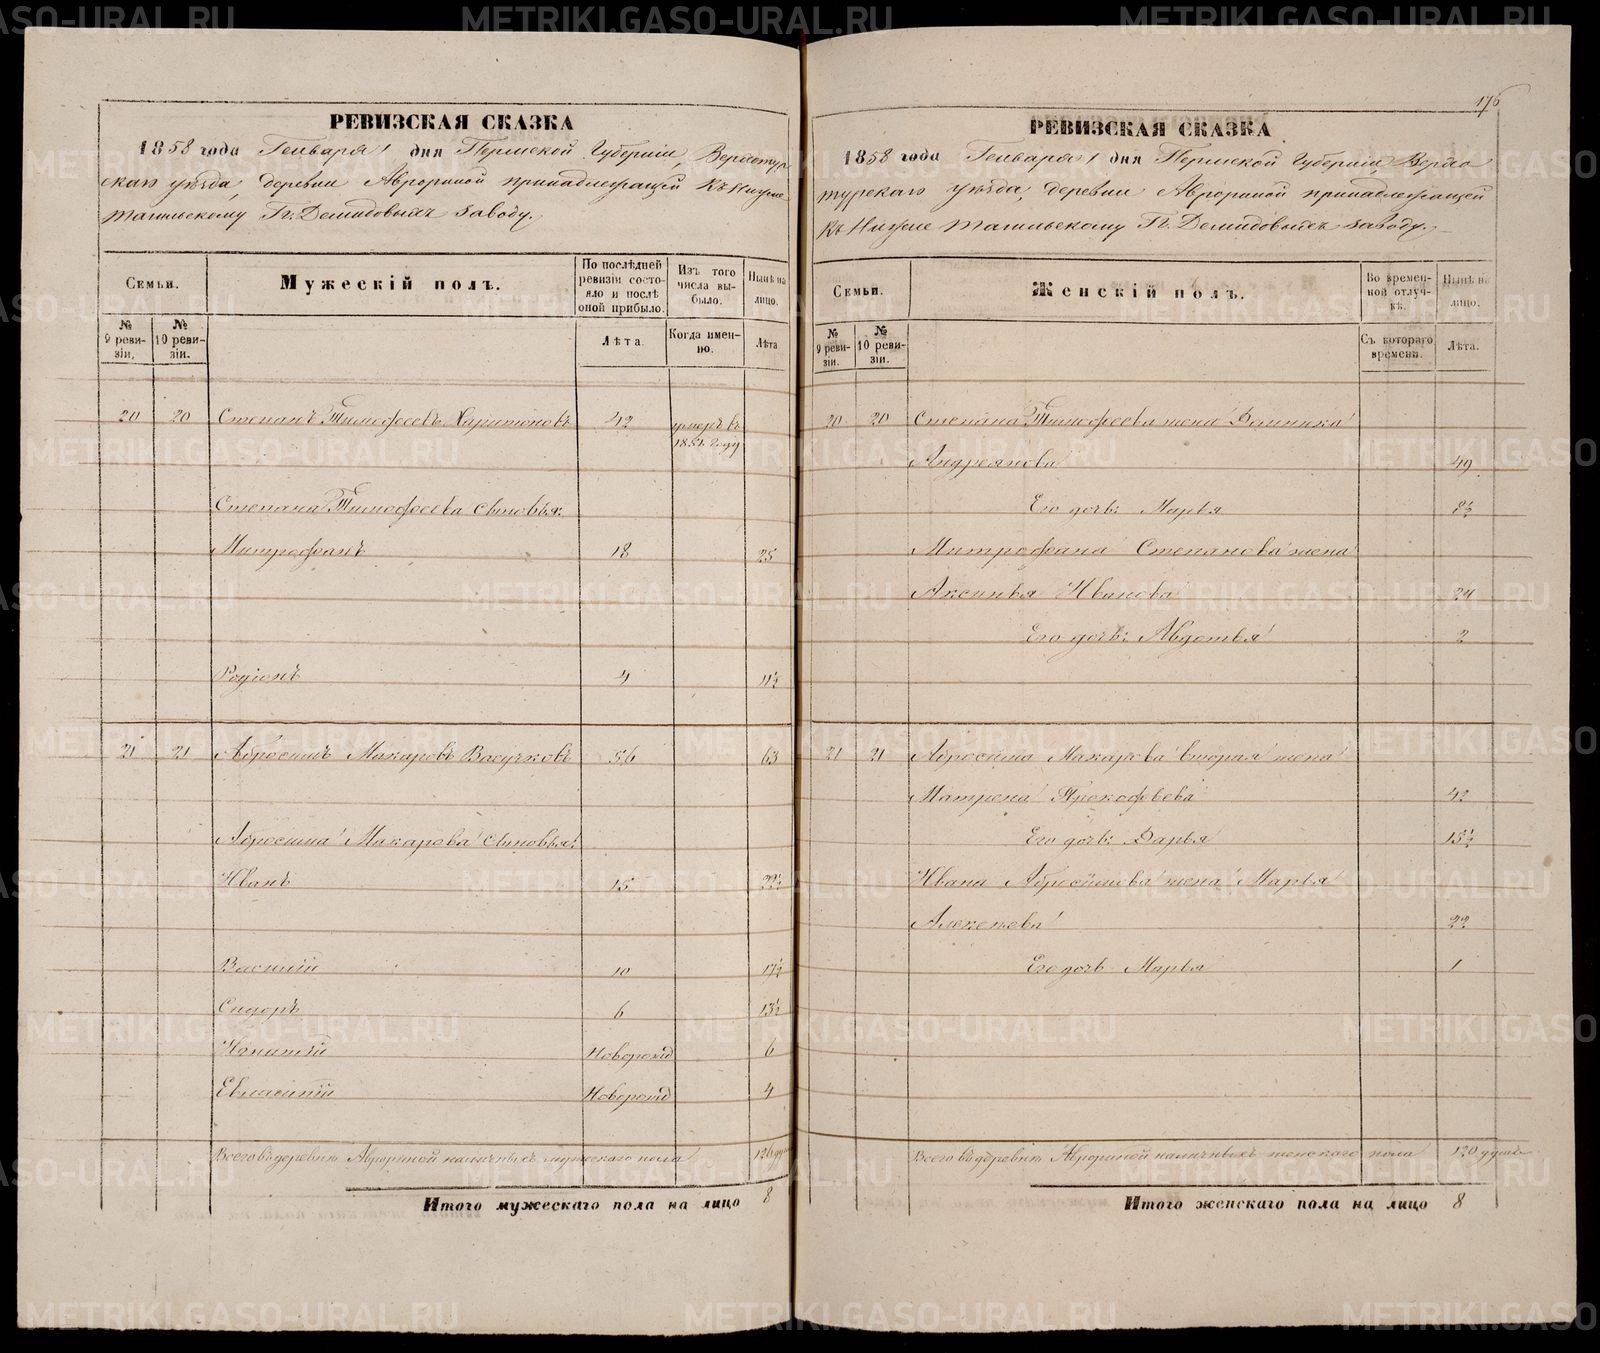 176
РЕВИЗСКАЯ СКАЗКА
1858 года Генваря 1 дня Пермской Губерніи, Верхотур
скаго уѣзда, деревни Аврориной принадлежащей къ Нижне
тагильскому Гг. Демидовыхъ заводу.
Семьи.
Мужескій полъ.
По послѣдней ревизіи состояло и послѣ оной прибыло.
Изъ того числа выбыло.
Нынѣ на лицо.
№ 9 ревизіи.
№ 10 ревизіи.
Лѣта.
Когда именно.
Лѣта
20 20 Степанъ Тимофеевъ Харитоновъ 42 умеръ въ 1851 году
Степана Тимофеева сыновья:
Митрофанъ 18 25
Родіонъ 4 11½
21 21 Абросимъ Макаровъ Васучковъ 56 63
Абросима Макарова сыновья:
Иванъ 15 22½
Василій 10 17½
Сидоръ 6 13½
Игнатій Новорожд 6
Евласпій Новорожд 4
Всего въ деревни Аврориной наличныхъ мужескаго пола 126 душ
Итого мужескаго пола на лицо 8
РЕВИЗСКАЯ СКАЗКА
1858 года Генваря 1 дня Пермской Губерніи, Верхо
турскаго уѣзда, деревни Аврориной принадлежащей
къ Нижне Тагильскому Гг. Демидовыхъ заводу.
Семьи.
Женскій полъ.
Во временной отлучкѣ.
Нынѣ на лицо.
№ 9 ревизіи.
№ 10 ревизіи.
Съ котораго времени.
Лѣта.
20 20 Степана Тимофеева жена Домника
Андреянова 49
Его дочь: Марья 8½
Митрофана Степанова жена
Аксинья Иванова 24
Его дочь: Авдотья 2
21 21 Абросима Макарова вторая жена
Матрена Прокофьева 42
Его дочь: Дарья 15½
Ивана Абросимова жена Марья
Алексеева 22
Его дочь Марья 1
Всего въ деревни Аврориной наличныхъ женскаго пола 120 душъ
Итого женскаго пола на лицо 8
METRIKI.GASO-URAL.RU